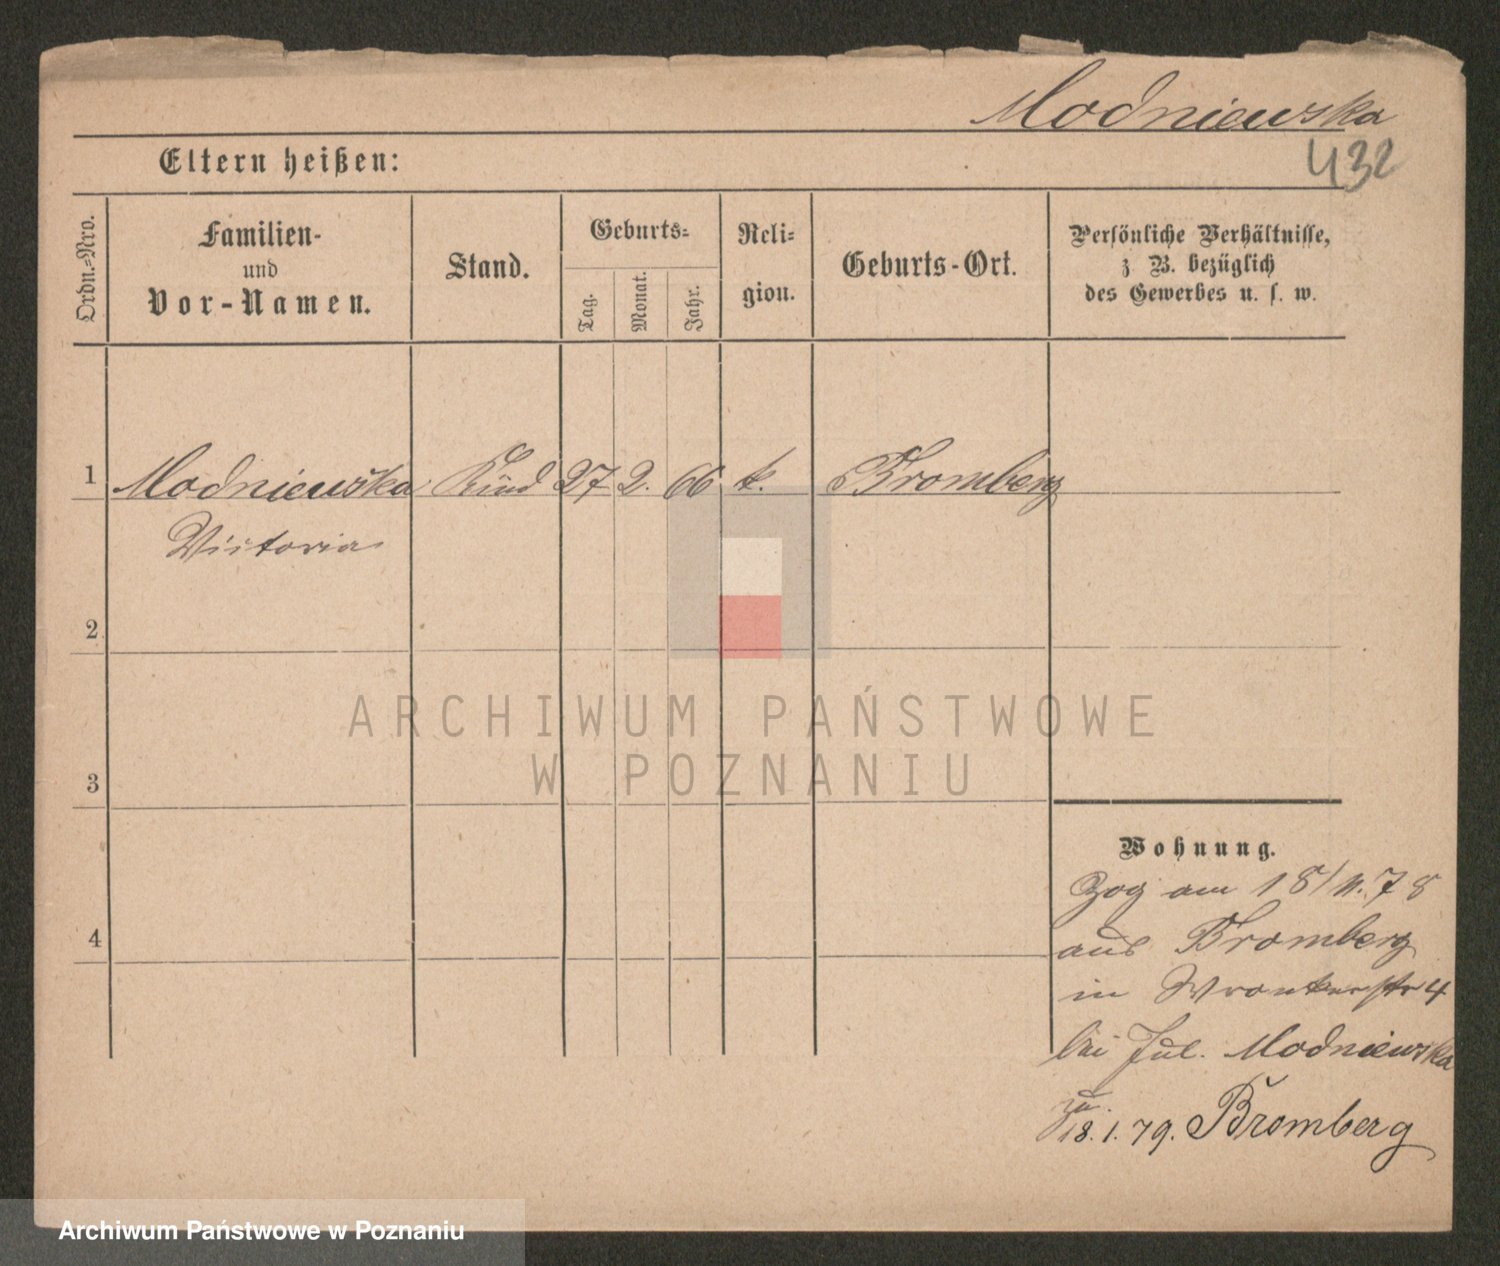 Modniewska
432
Eltern heißen:
Ordn.-Nro.
Familien-
und
Vor-Namen.
Stand.
Geburts-
Tag.
Monat.
Jahr.
Reli-
gion.
Geburts-Ort.
Persönliche Verhältnisse,
z B. bezüglich
des Gewerbes u. s. w.
1 Modniewska Kind 27 2. 66 k. Bromberg
Victoria
2
3
4
ARCHIWUM PAŃSTWOWE
W POZNANIU
Wohnung.
Zog am 18/11.78
aus Bromberg
in Wronkerstr 4
bei Jul. Modniewska
18.1.79. Bromberg
Archiwum Państwowe w Poznaniu